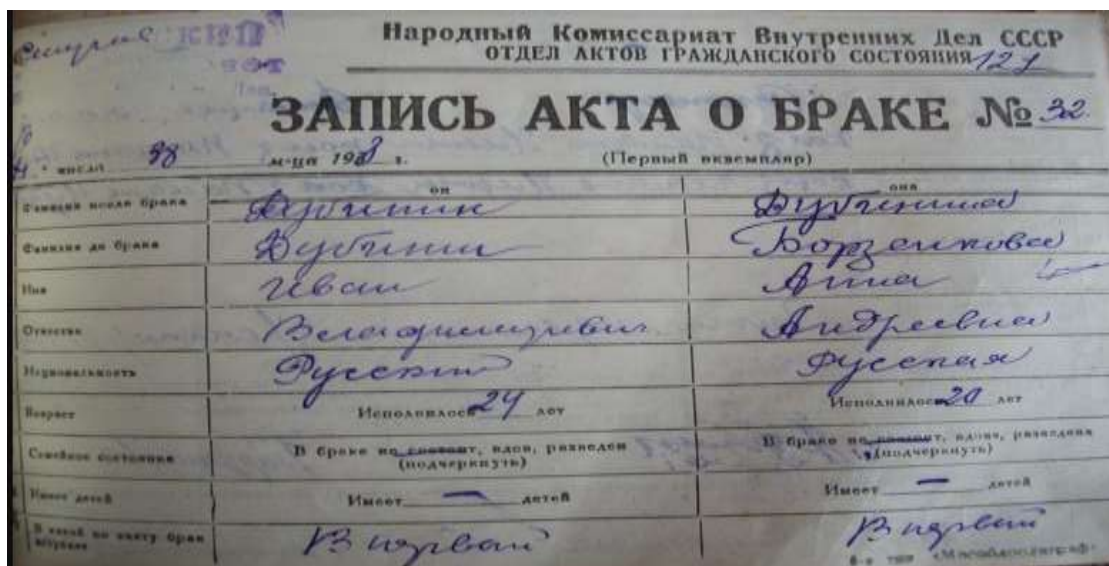 Народный Комиссариат Внутренних Дел СССР
ОТДЕЛ АКТОВ ГРАЖДАНСКОГО СОСТОЯНИЯ 121
ЗАПИСЬ АКТА О БРАКЕ № 32.
числа м-ца 1938 г. (Первый экземпляр)
он она
Фамилия после брака Дубинин Дубинина
Фамилия до брака Дубинин Борзенкова
Имя Иван Анна
Отчество Андреевна
Национальность Русский Русская
Возраст Исполнилось 24 лет Исполнилось 20 лет
Семейное состояние В браке не состоит, вдов, разведен (подчеркнуть) В браке не состоит, вдова, разведена (подчеркнуть)
Имеет детей Имеет — детей Имеет — детей
В какой по счету брак вступает В первый В первый